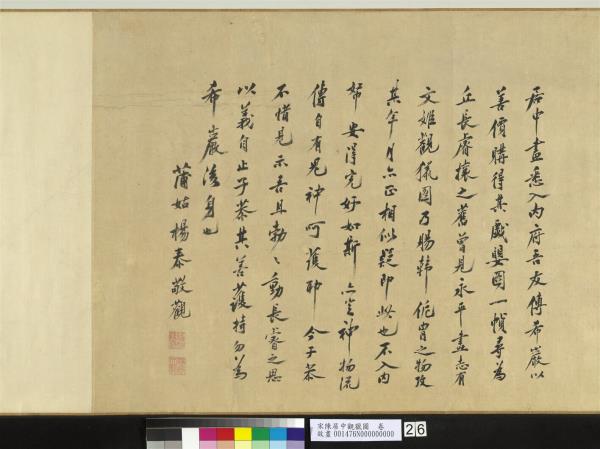 居中畫悉入內府吾友傅希巖以
善價購得其戲嬰圖一幀尋為
丘長睿攘之舊曾見永平畫志有
文姬觀獵圖乃賜韓侂胄之物攷
其年月亦正相似疑即此也不入內
帑安得完好如斯亦豈神物流
傳自有鬼神呵護耶今子恭
不惜見示吾且勃勃動長睿之思
以義自止子恭其善護持勿為
希巖後身也
蒲姑楊泰敬觀
宋陳居中觀獵圖 卷
故畫 001476N000000000
26